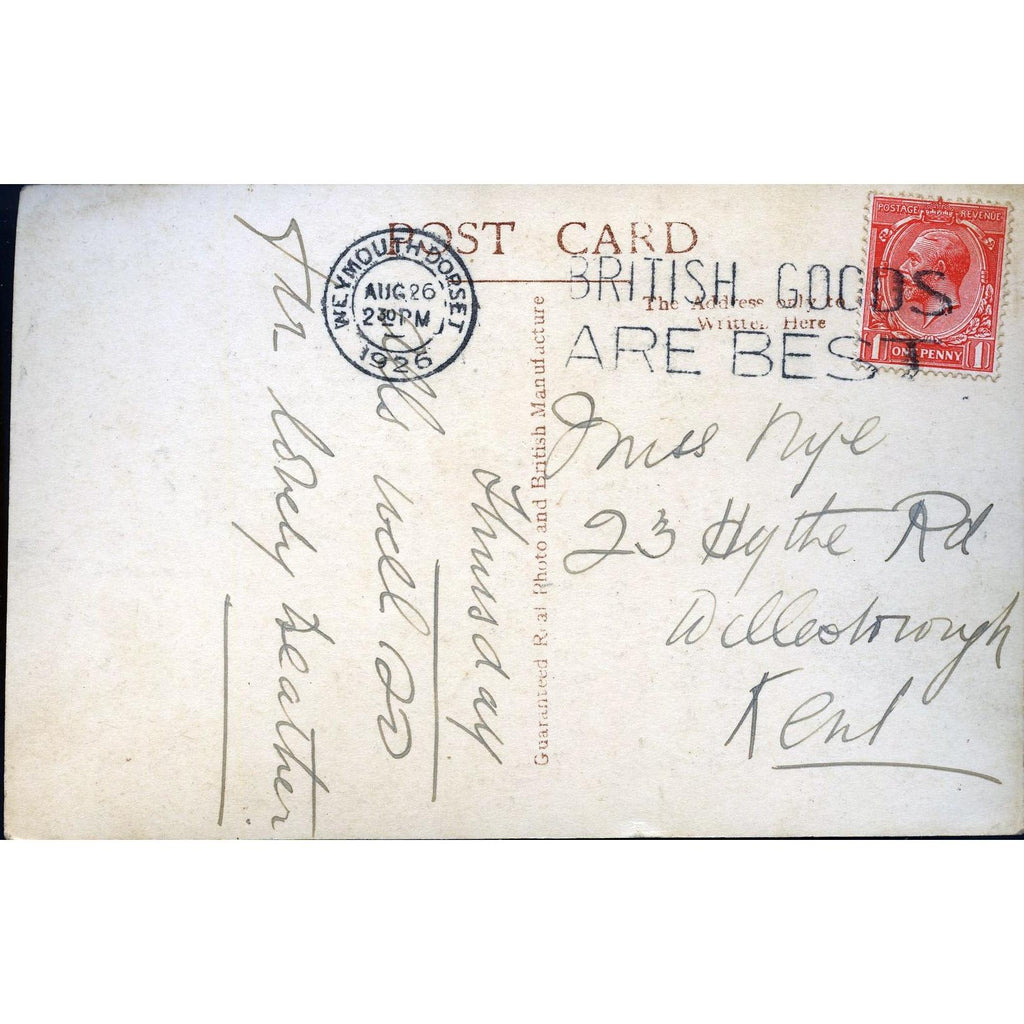 POST CARD
WEYMOUTH·DORSET
AUG 26
2 30 PM
1926
BRITISH GOODS
ARE BEST
POSTAGE REVENUE
1 ONE PENNY 1
The Address only to
Written Here
Guaranteed Real Photo and British Manufacture
Thursday
Alls well so
far lovely weather
Miss Nye
23 Hythe Rd
Willesborough
Kent